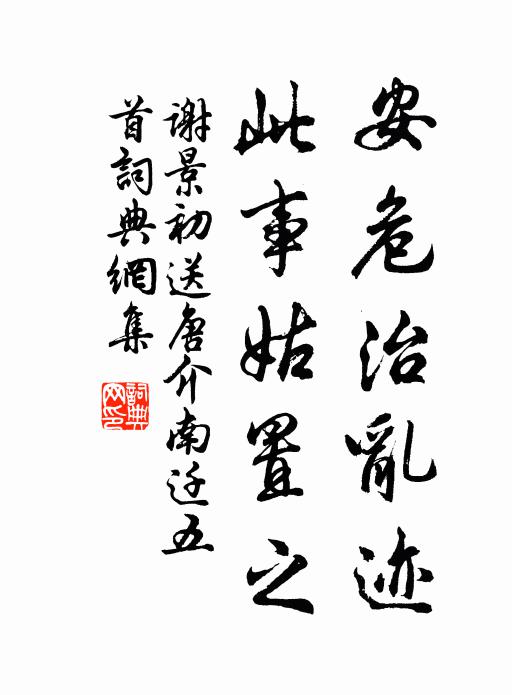 安危治亂迹
此事姑置之
謝景初送唐介南迁五
首詞典網集
詞典
网印